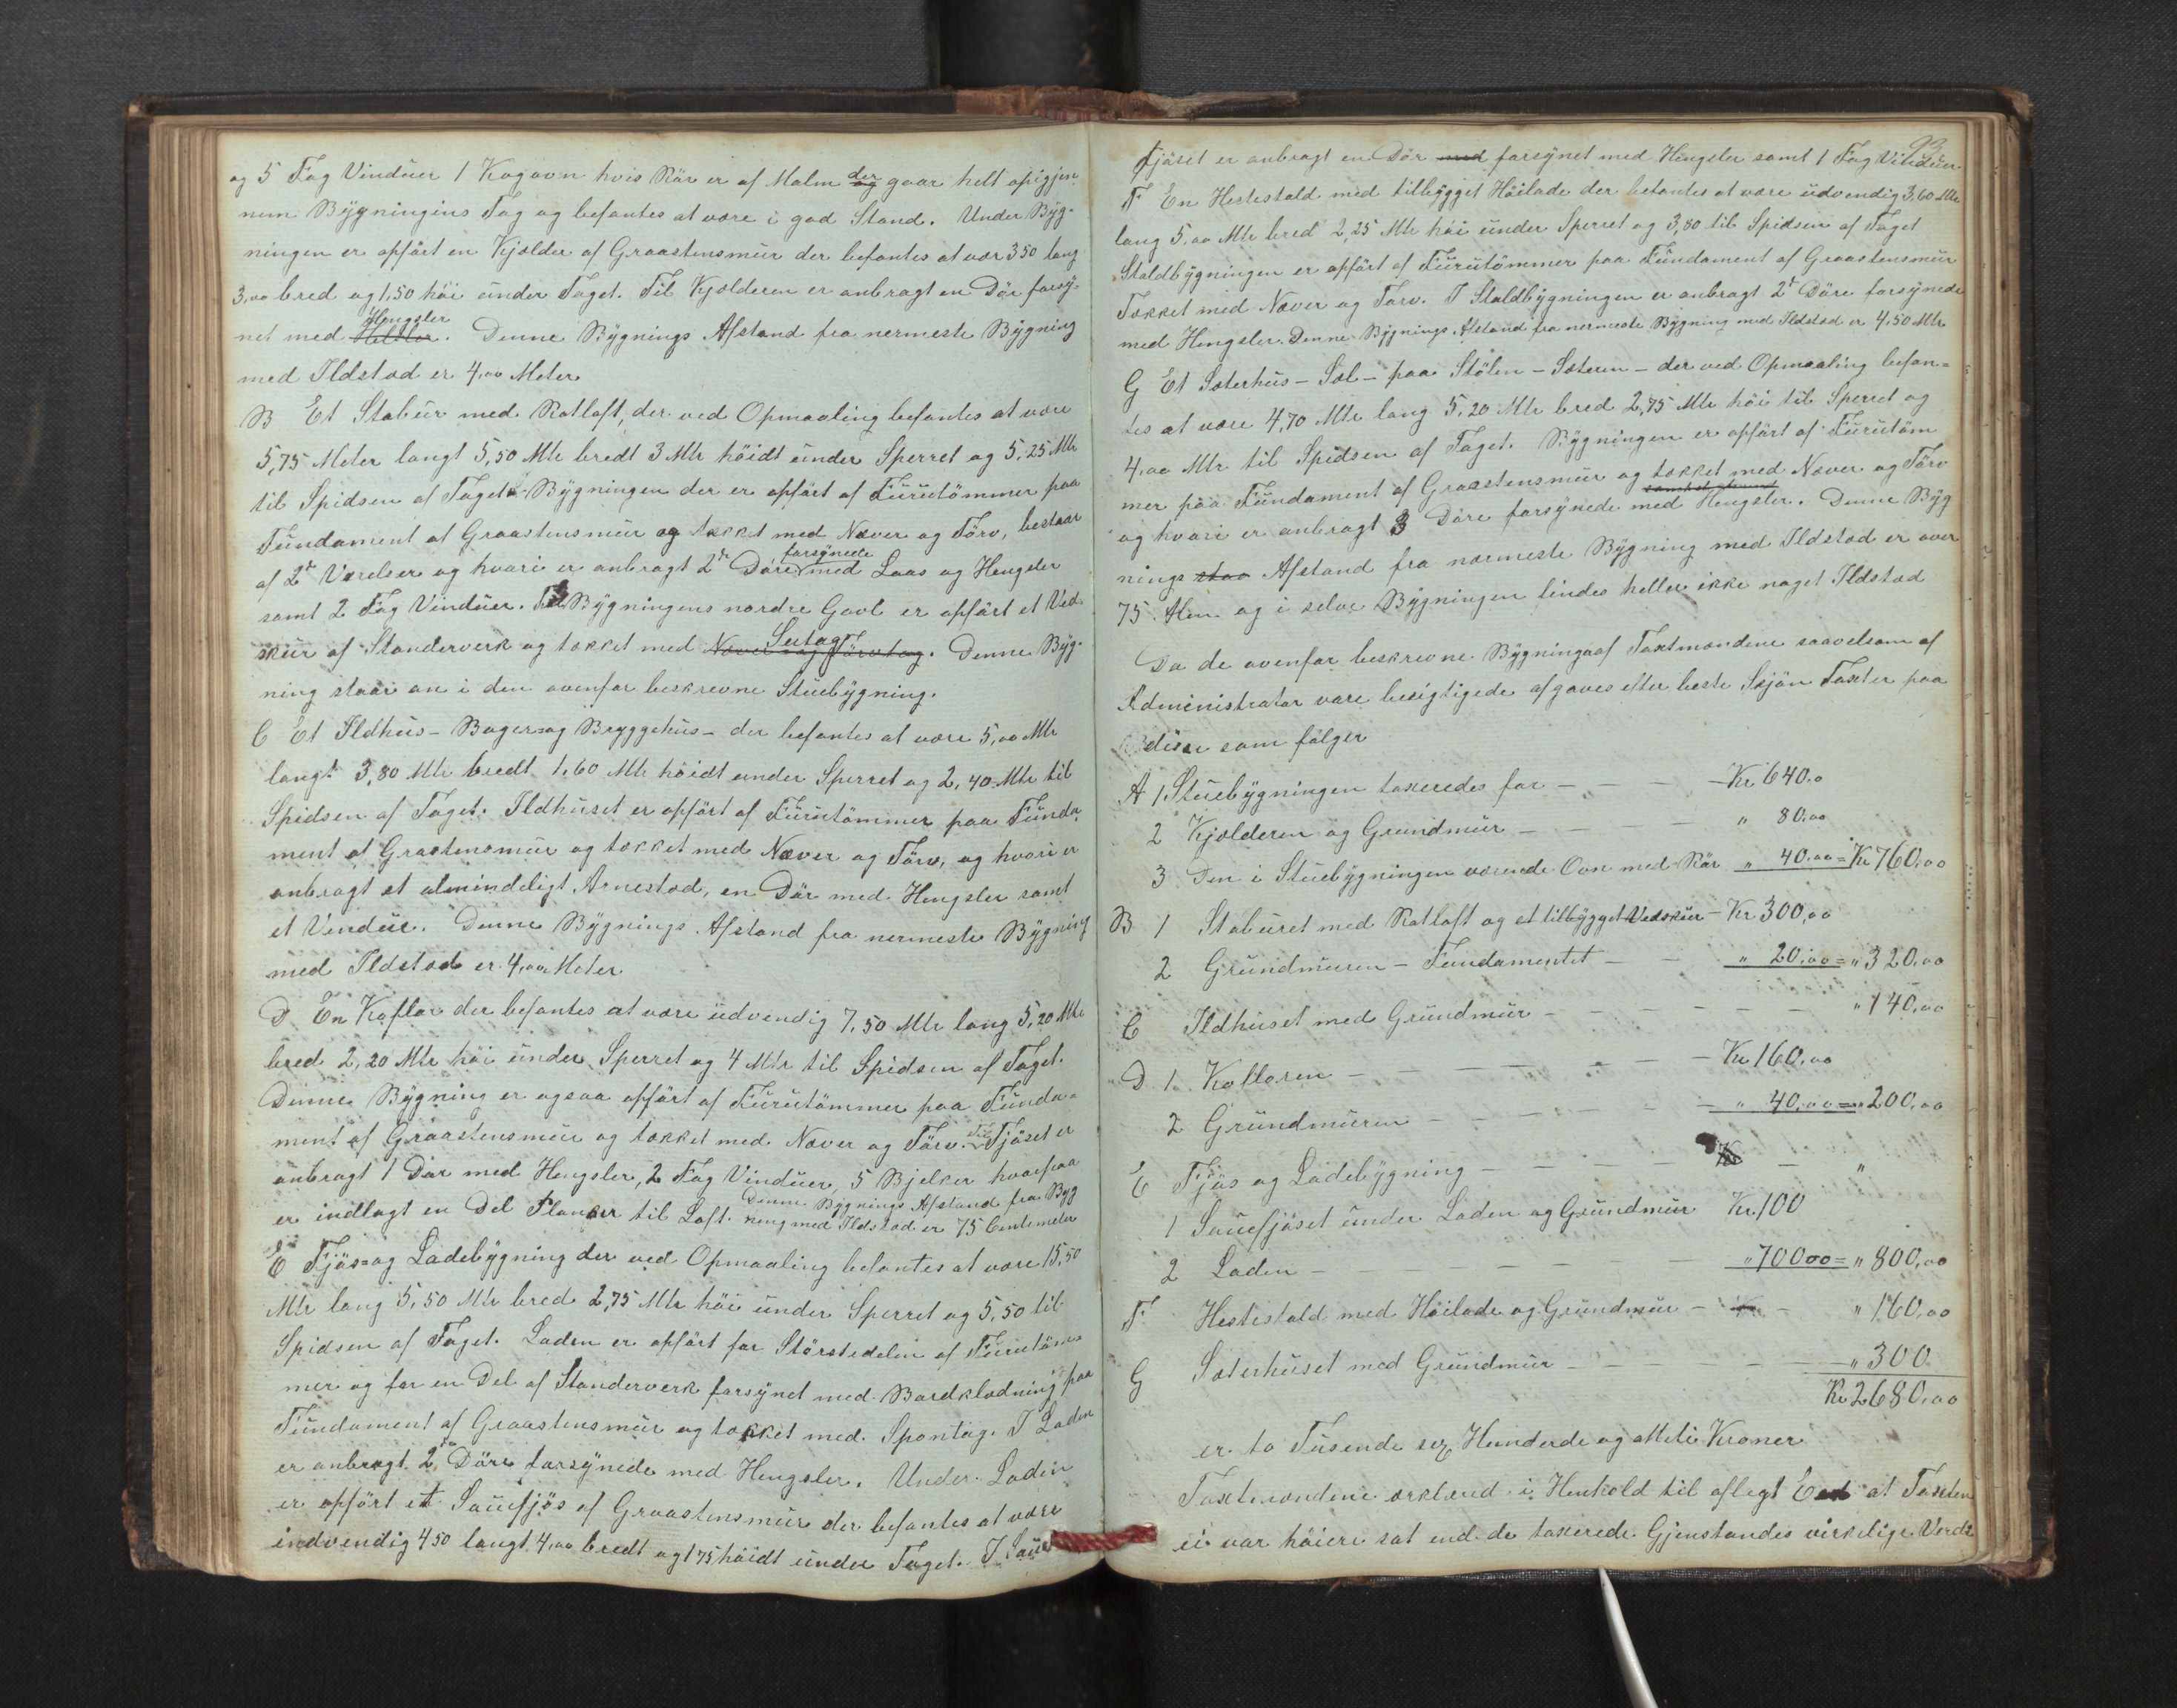 og 5 Fag Vinduer 1 Kogovn hvis Rør er af Malm der gaar helt opigjen-
nem Bygningins Tag og befantes at være i god Stand. Under Byg-
ningen er opført en Kjælder af Graastensmur der befantes at vær 350 lang
3,00 bred og 1,50 höi under Taget. Til Kjælderen er anbragt en Dör forsy-
net med Hengsler. Denne Bygnings Afstand fra nermeste Bygning
med Ildstad er 4,00 Meter
B Et Stabur med Ratloft, der ved Opmaaling befantes at være
5,75 Meter langt 5,50 Mtr bredt 3 Mtr höidt under Sperret og 5,25 Mtr
til Spidsen af Taget. Bygningen der er opfört af Furutömmer paa
Fundament af Graastensmur og tækket med Næver og Törv, bestaar
af 2de Værelser og hvori er anbragt 2de Döre forsynede med Laas og Hengsler
samt 2 Fag Vinduer. Til Bygningens nordre Gavl er opfört et Ved-
skur af Standerverk og tækket med Næver og Törvtag Sutag. Denne Byg-
ning staar an i den ovenfor beskrevne Stuebygning.
C Et Ildhus - Bager og Bryggehus - der befantes at være 5,00 Mtr
langt 3,80 Mtr bredt 1,60 Mtr höidt under Sperret og 2,40 Mtr til
Spidsen af Taget. Ildhuset er opfört af Furutömmer paa Funda-
ment af Graatensmur og tækket med Næver og Törv, og hvori er
anbragt et almindeligt Arnestad, en Dör med Hengsler samt
et Vindue. Denne Bygnings Afstand fra nermeste Bygning
med Ildstad er 4,00 Meter
D En Koflor der befantes at være udvendig 7,50 Mtr lang 5,20 Mtr
bred 2,20 Mtr höi under Sperret og 4 Mtr til Spidsen af Taget.
Denne Bygning er ogsaa opfört af Furutömmer paa Funda-
ment af Graastensmur og tækket med Næver og Törv. Til Fjöset er
anbragt 1 Dör med Hengsler, 2 Fag Vinduer, 5 Bjelker hvorpaa
er indlagt en Del Planker til Loft. Denne Bygnings Afstand fra Byg
ning med Ildstad er 75 Centimeter
E Fjös= og Ladebygning der ved Opmaaling befantes at være 15,50
Mtr lang 5,50 Mtr bred 2,75 Mtr höi under Sperret og 5,50 til
Spidsen af Taget. Laden er opfört for Störstedelen af Furutöm-
mer og for en Del af Standerverk forsynet med Bordklædning paa
Fundament af Graastensmur og tækket med Spontag. I Laden
er anbragt 2de Döre forsynede med Hengsler. Under Laden
er opfört et Sauefjös af Graastensmur der befantes at være
indvendig 4 50 langt 4,00 bredt og 1 75 höidt under Taget. I Saue
93
fjöset er anbragt en Dör med forsynet med Hengsler samt 1 Fag Vinduer
F En Hestestald med tilbygget Höilade der befantes at være udvendig 3,60 Mtr
lang 5,00 Mtr bred 2,25 Mtr höi under Sperret og 3,80 til Spidsen af Taget
Staldbygningen er opfört af Furutömmer paa Fundament af Graastensmur
Tækket med Næver og Törv. I Staldbygningen er anbragt 2de Döre forsynede
med Hengsler. Denne Bygnings Afstand fra nermeste Bygning med Ildstad er 4,50 Mtr
G Et Sæterhus - Sæl - paa Stölen - Sæteren - der ved Opmaaling befan=
tes at være 4,70 Mtr lang 5,20 Mtr bred 2,75 Mtr höi til Sperret og
4,00 Mtr til Spidsen af Taget. Bygningen er opfört af Furutöm
mer paa Fundament af Graastensmur og tækket med Næver og Törv
og hvori er anbragt 3 Döre forsynede med Hengsler. Denne Byg
nings staa Afstand fra nærmeste Bygning med Ildstad er over
75 Alen og i selve Bygningen findes heller ikke noget Ildstad
Da de ovenfor beskrevne Bygninga af Taxtmændene saavelsom af
Administrator vare besigtigede afgaves efter beste Skjön Taxter paa
disse som fölger
A 1 Stuebygningen taxeredes for - - - Kr 640.0
2 Kjælderen og Grundmur - - - " 80.00
3 Den i Stuebygningen værende Ovn med Rör " 40.00 = Kr 760,00
B 1 Staburet med Ratloft og et tilbygget Vedskur - Kr 300,00
2 Grundmuren - Fundamentet - - " 20,00 = " 320,00
C Ildhuset med Grundmur - - - - - " 140,00
D 1 Kofloren - - - - - - Kr 160,00
2 Grundmuren - - - - - " 40,00 = " 200,00
E Fjös og Ladebygning - - - - - "
1 Sauefjöset under Laden og Grundmur Kr. 100
2 Laden - - - - - - " 700 00 = " 800,00
F. Hestestald med Höilade og Grundmur - - " 160,00
G Sæterhuset med Grundmur - - - - " 300
Kr 2680,00
er to Tusende sex Hunderde og otteti Kroner
Taxtmændene erklæred i Henhold til aflagt Eed at Taxten
ei var höiere sat end de taxerede Gjenstandes virkelige Værdi